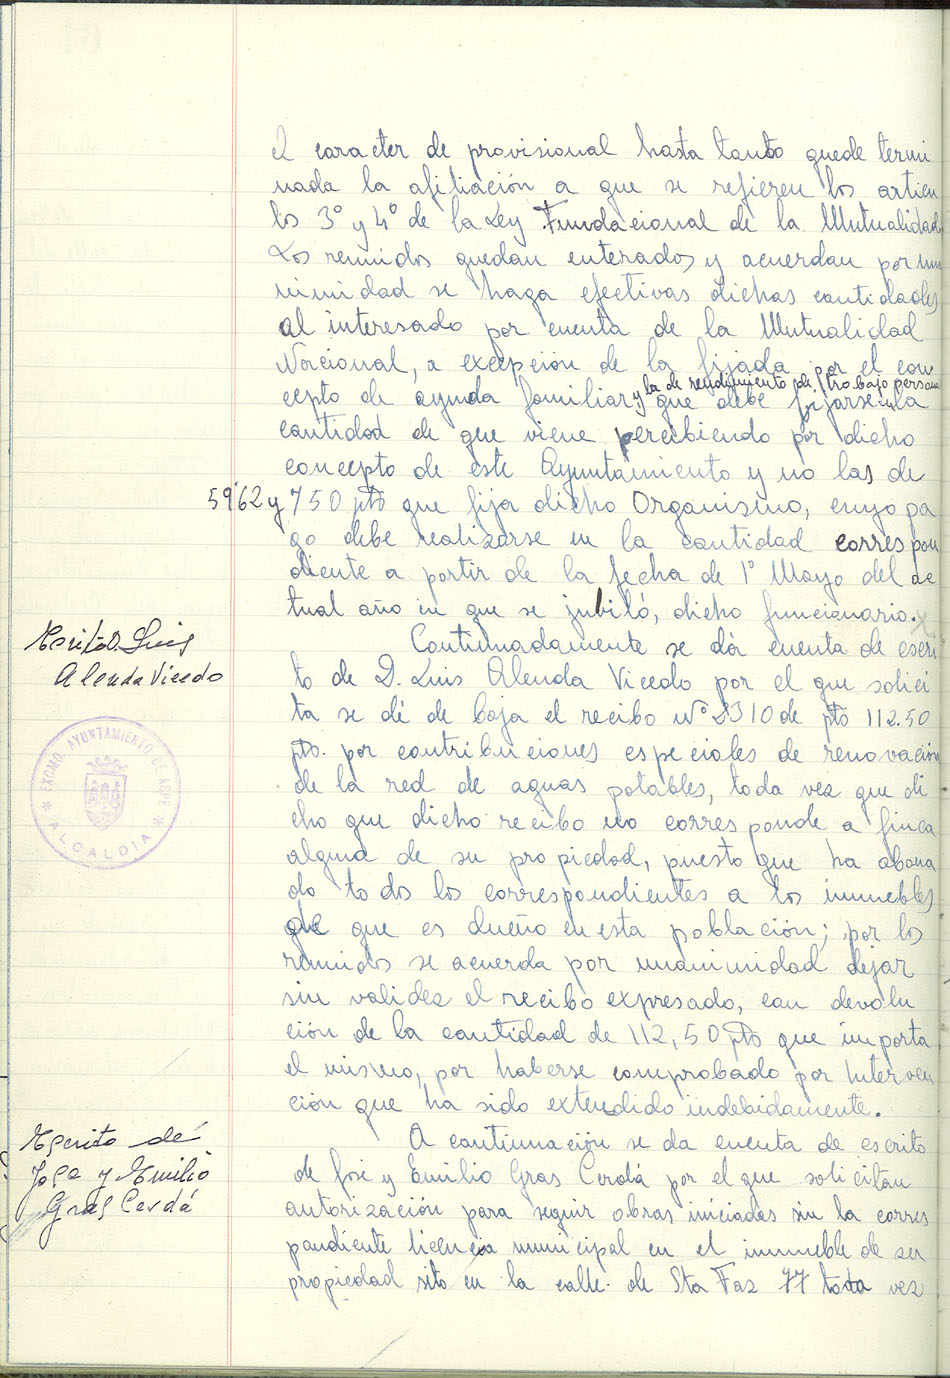 el caracter de provisional hasta tanto quede termi
nada la afiliación a que se refieren los articu
los 3º y 4º de la Ley Fundacional de la Mutualidad
Los reunidos quedan enterados y acuerdan por una
nimidad se haga efectivas dichas cantidades
al interesado por cuenta de la Mutualidad
Nacional, a excepción de la fijada por el con
y la de rendimiento de trabajo personal
cepto de ayuda familiar, que debe fijarse en la
cantidad de que viene percibiendo por dicho
concepto de este Ayuntamiento y no las de
59'62 y 750 pts que fija dicho Organismo, cuyo pa
go debe realizarse en la cantidad correspon
diente a partir de la fecha de 1º Mayo del ac
tual año en que se jubiló, dicho funcionario.
Escrito D. Luis
Alenda Vicedo
Continuadamente se dà cuenta de escri
to de D. Luis Alenda Vicedo por el que solici
ta se dé de baja el recibo Nº 2310 de pts 112.50
pts. por contribuciones especiales de renovación
de la red de aguas potables, toda vez que di
cho que dicho recibo no corresponde a finca
alguna de su propiedad, puesto que ha abona
do todos los correspondientes a los inmuebles
de que es dueño en esta población; por los
reunidos se acuerda por unanimidad dejar
sin validez el recibo expresado, con devolu
ción de la cantidad de 112,50 pts que importa
el mismo, por haberse comprobado por Interven
ción que ha sido extendido indebidamente.
EXCMO. AYUNTAMIENTO DE ASPE
* ALCALDIA *
Escrito de
Jose y Emilio
Gras Cerdá
A continuación se da cuenta de escrito
de José y Emilio Gras Cerdá por el que solicitan
autorización para seguir obras iniciadas sin la corres
pondiente licencia municipal en el inmueble de su
propiedad sito en la calle de Sta Faz 77 toda vez